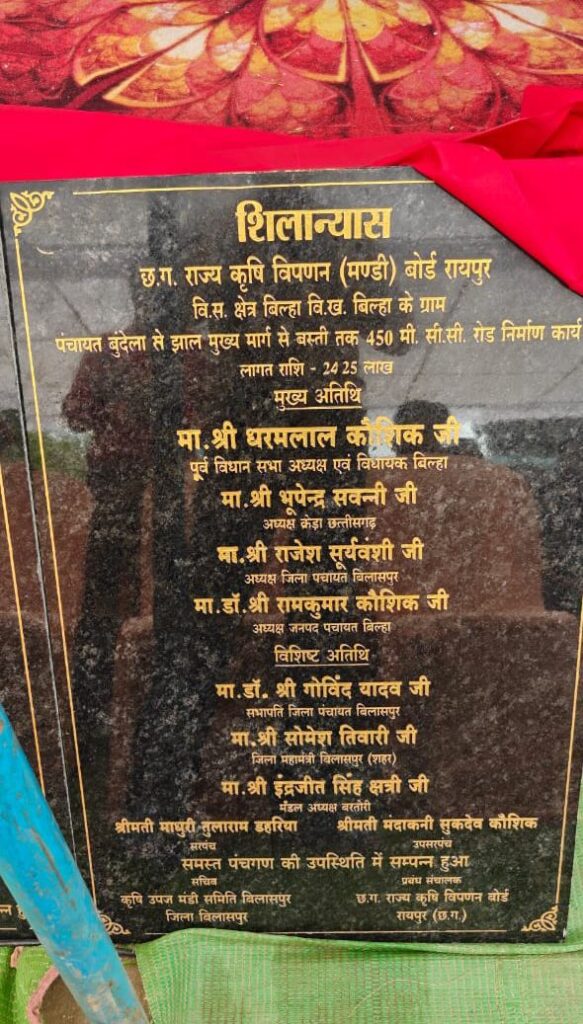 शिलान्यास
छ.ग. राज्य कृषि विपणन (मण्डी) बोर्ड रायपुर
वि.स. क्षेत्र बिल्हा वि.ख. बिल्हा के ग्राम
पंचायत बुंदेला से झाल मुख्य मार्ग से बस्ती तक 450 मी. सी.सी. रोड निर्माण कार्य
लागत राशि - 24 25 लाख
मुख्य अतिथि
मा.श्री धरमलाल कौशिक जी
पूर्व विधान सभा अध्यक्ष एवं विधायक बिल्हा
मा.श्री भूपेन्द्र सवन्नी जी
अध्यक्ष क्रेडा छत्तीसगढ़
मा.श्री राजेश सूर्यवंशी जी
अध्यक्ष जिला पंचायत बिलासपुर
मा.डॉ.श्री रामकुमार कौशिक जी
अध्यक्ष जनपद पंचायत बिल्हा
विशिष्ट अतिथि
मा.डॉ. श्री गोविंद यादव जी
सभापति जिला पंचायत बिलासपुर
मा.श्री सोमेश तिवारी जी
जिला महामंत्री बिलासपुर (शहर)
मा.श्री इंद्रजीत सिंह क्षत्री जी
मंडल अध्यक्ष बरतोरी
श्रीमती माधुरी तुलाराम डहरिया श्रीमती मंदाकनी सुकदेव कौशिक
सरपंच उपसरपंच
समस्त पंचगण की उपस्थिति में सम्पन्न हुआ
सचिव प्रबंध संचालक
कृषि उपज मंडी समिति बिलासपुर छ.ग. राज्य कृषि विपणन बोर्ड
जिला बिलासपुर रायपुर (छ.ग.)